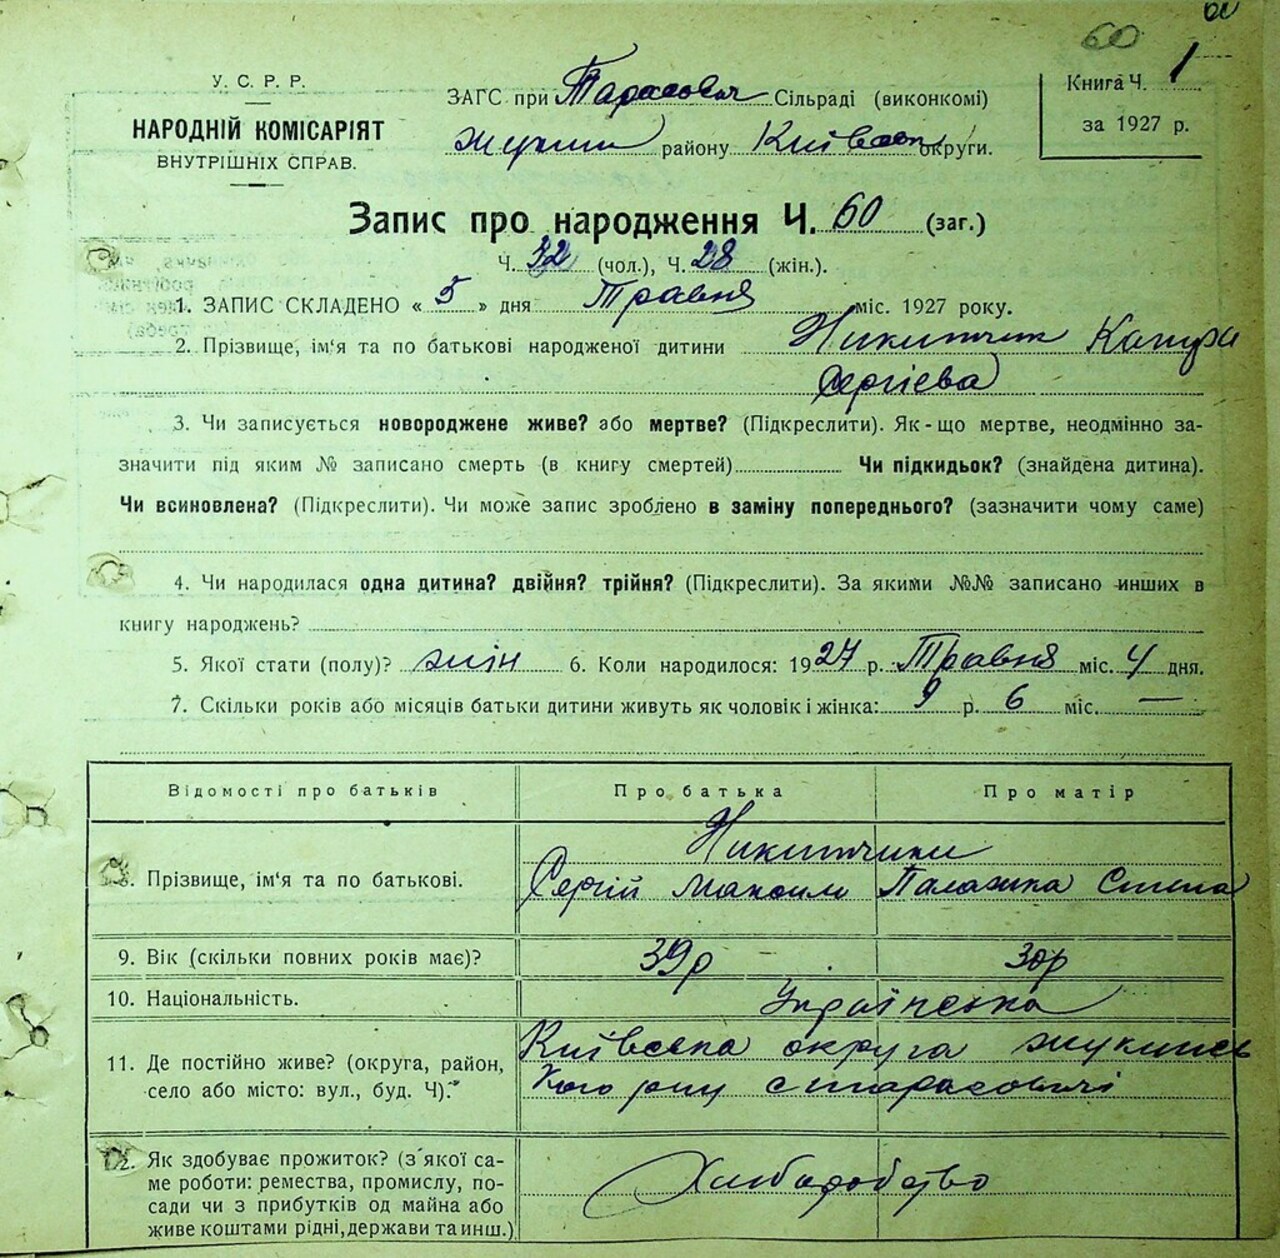 60
У. С. Р. Р.
НАРОДНІЙ КОМІСАРІЯТ
ВНУТРІШНІХ СПРАВ.
ЗАГС при Тарасович Сільраді (виконкомі)
району Київськ округи.
Книга Ч. 1
за 1927 р.
Запис про народження Ч. 60 (заг.)
Ч. 32 (чол.), Ч. 28 (жін.).
1. ЗАПИС СКЛАДЕНО « 5 » дня Травня міс. 1927 року.
2. Прізвище, ім'я та по батькові народженої дитини Никитчик
Сергієва
3. Чи записується новороджене живе? або мертве? (Підкреслити). Як-що мертве, неодмінно за-
значити під яким № записано смерть (в книгу смертей) Чи підкидьок? (знайдена дитина).
Чи всиновлена? (Підкреслити). Чи може запис зроблено в заміну попереднього? (зазначити чому саме)
4. Чи народилася одна дитина? двійня? трійня? (Підкреслити). За якими №№ записано инших в
книгу народжень?
5. Якої стати (полу)? жін 6. Коли народилося: 1927 р. Травня міс. 4 дня.
7. Скільки років або місяців батьки дитини живуть як чоловік і жінка: 9 р. 6 міс. —
Відомості про батьків Про батька Про матір
Никитчики
8. Прізвище, ім'я та по батькові. Сергій Максим Палажка Степа
9. Вік (скільки повних років має)? 39р 30р
10. Національність. Українська
11. Де постійно живе? (округа, район,
село або місто: вул., буд. Ч).
Київська округа жукинсь
кого р-ну с тарасовичі
12. Як здобуває прожиток? (з якої са-
ме роботи: ремества, промислу, по-
сади чи з прибутків од майна або
живе коштами рідні, держави та инш.)
Хлібаробство